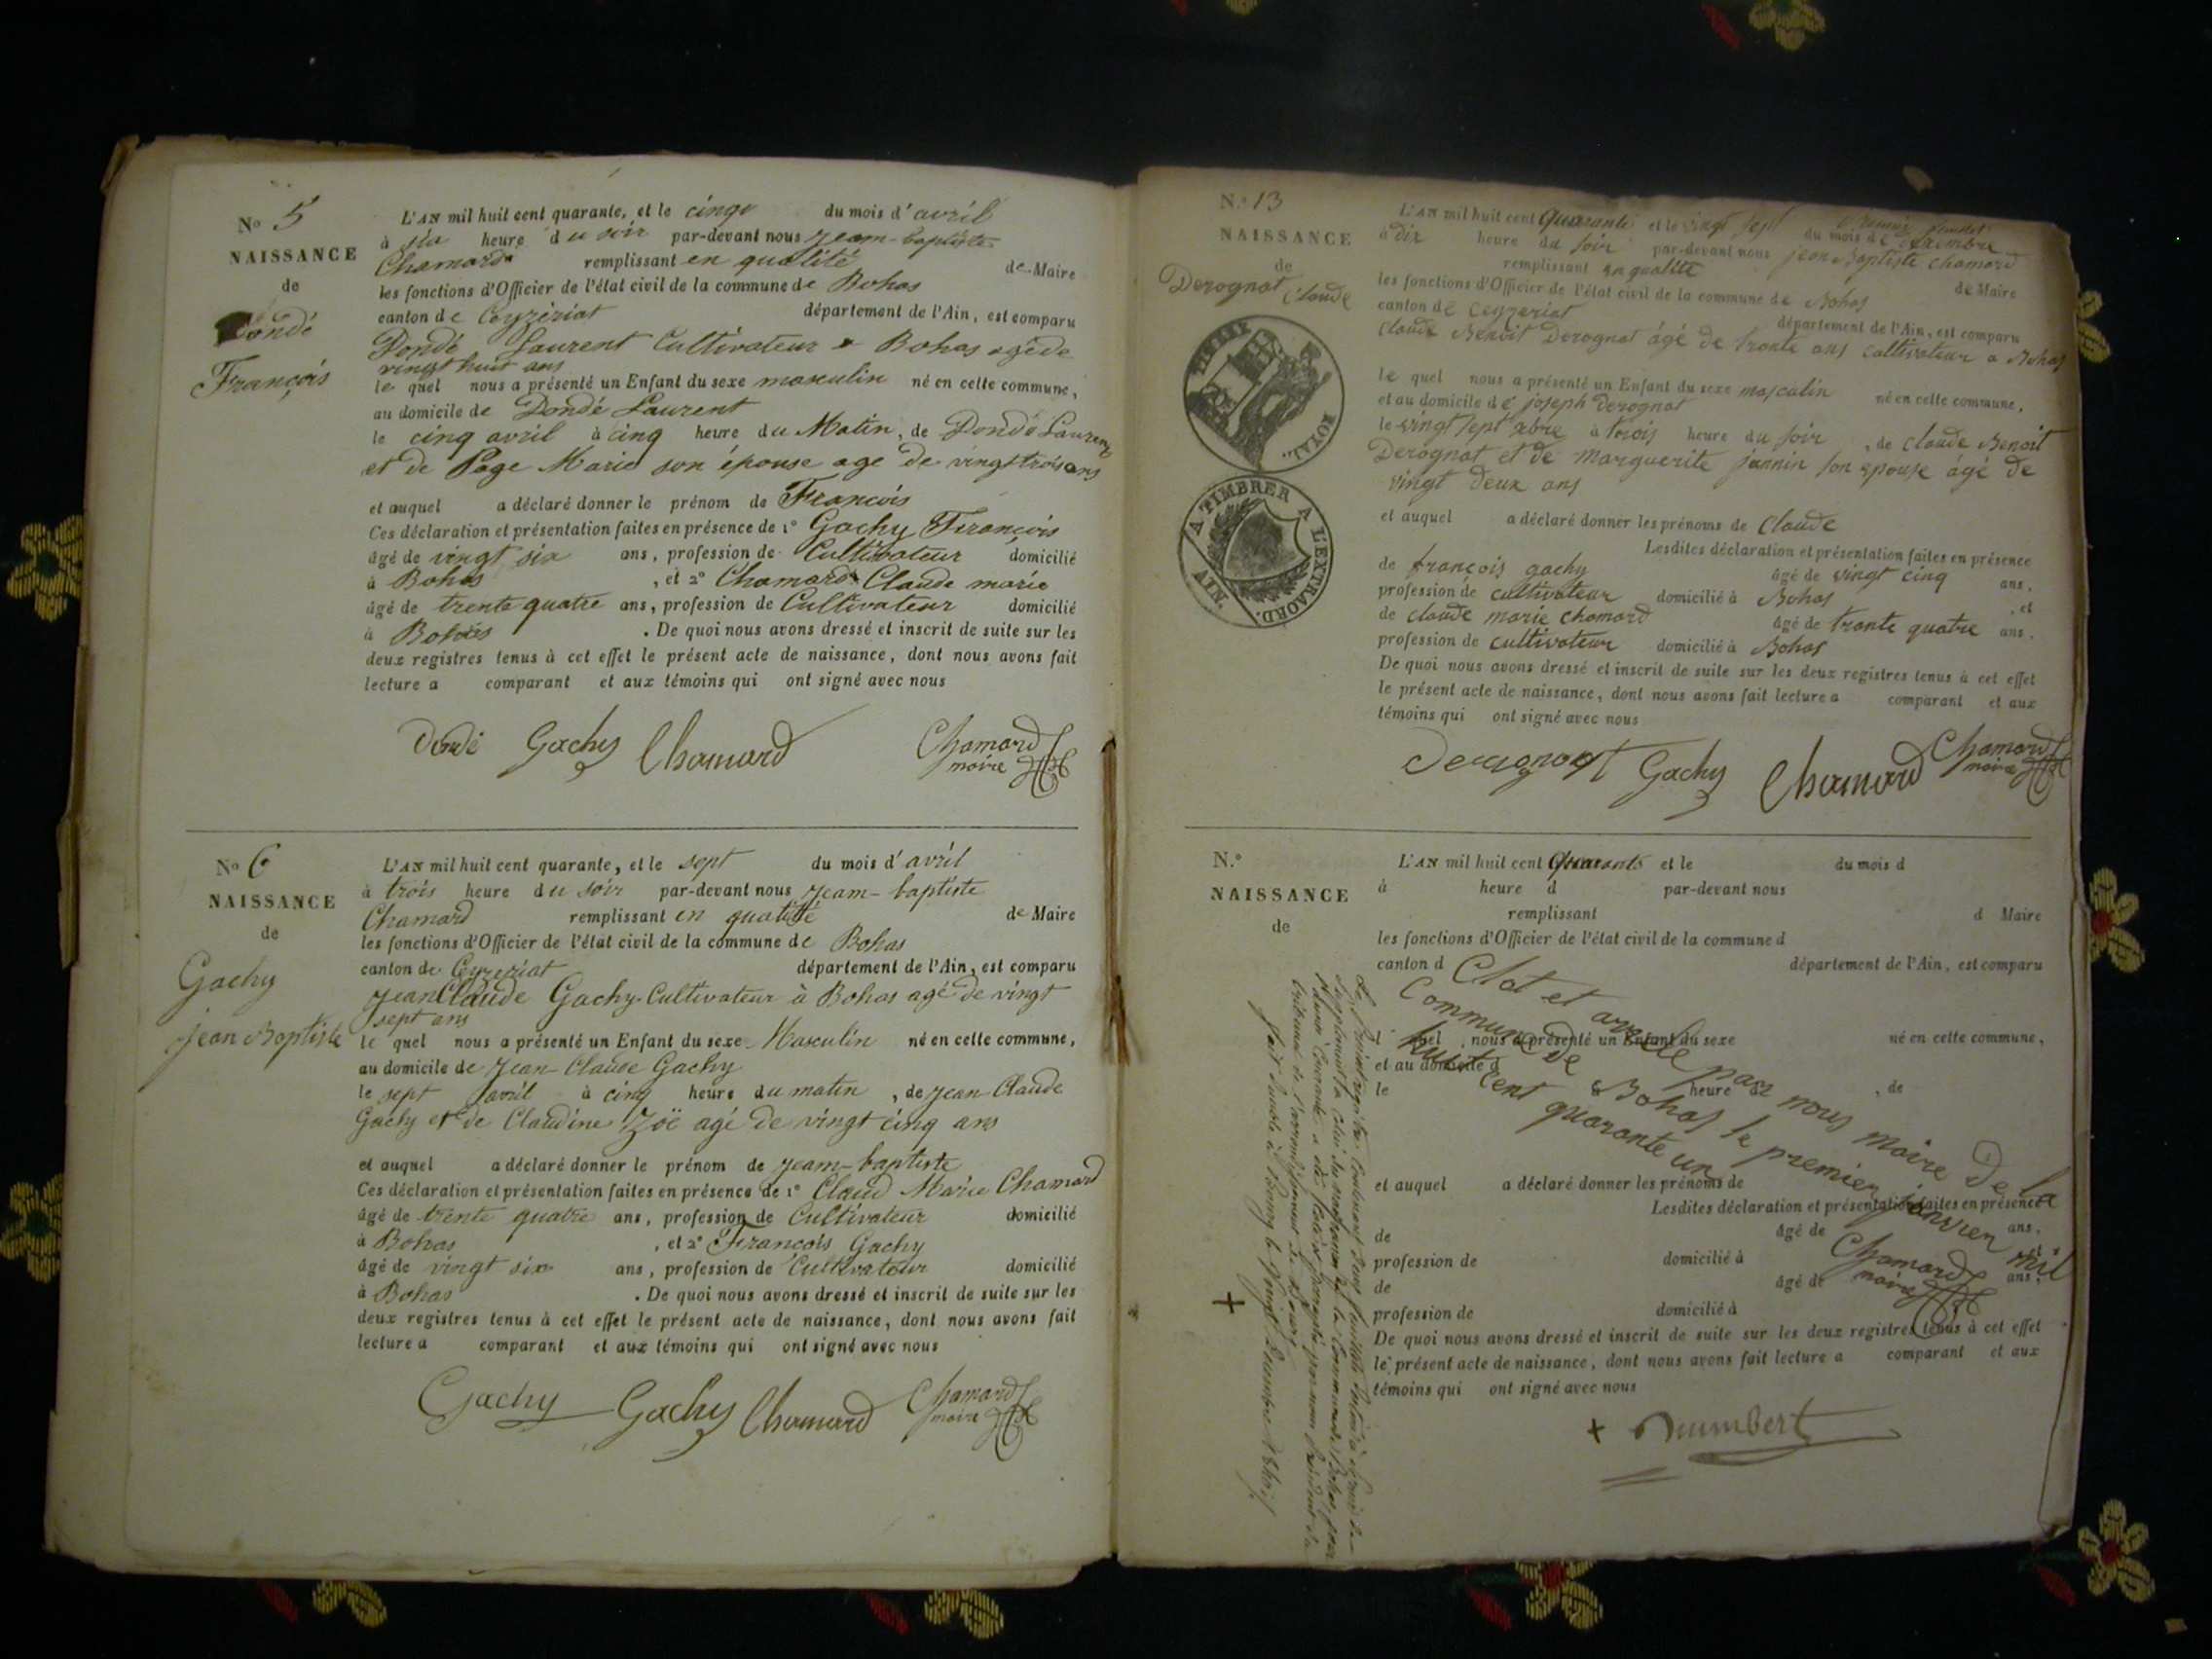 No 5
NAISSANCE
de
Dondé
François
L'AN mil huit cent quarante, et le cinq du mois d'avril
à six heure du soir par-devant nous jean-baptiste
Chamard remplissant en qualité de Maire
les fonctions d'Officier de l'état civil de la commune de Bohas
canton de Ceyzériat département de l'Ain, est comparu
Dondé Laurent Cultivateur a Bohas agé de
vingt huit ans
le quel nous a présenté un Enfant du sexe masculin né en cette commune,
au domicile de Dondé Laurent
le cinq avril à cinq heure du Matin, de Dondé Laurent
et de Page Marie son épouse age de vingt trois ans
et auquel a déclaré donner le prénom de François
Ces déclaration et présentation faites en présence de 1° Gachy François
âgé de vingt six ans, profession de Cultivateur domicilié
à Bohas, et 2° Chamard Claude marie
âgé de trente quatre ans, profession de Cultivateur domicilié
à Bohas. De quoi nous avons dressé et inscrit de suite sur les
deux registres tenus à cet effet le présent acte de naissance, dont nous avons fait
lecture a comparant et aux témoins qui ont signé avec nous
Dondé Gachy Chamard Chamard
maire
No 6
NAISSANCE
de
Gachy
jean Baptiste
L'AN mil huit cent quarante, et le sept du mois d'avril
à trois heure du soir par-devant nous jeam-baptiste
Chamard remplissant en qualité de Maire
les fonctions d'Officier de l'état civil de la commune de Bohas
canton de Ceyzeriat département de l'Ain, est comparu
jean Claude Gachy Cultivateur à Bohas agé de vingt
sept ans
le quel nous a présenté un Enfant du sexe Masculin né en cette commune,
au domicile de jean-Claude Gachy
le sept avril à cinq heure du matin, de jean Claude
Gachy et de Claudine Zoë agé de vingt cinq ans
et auquel a déclaré donner le prénom de jeam-baptiste
Ces déclaration et présentation faites en présence de 1° Claud Marie Chamard
âgé de trente quatre ans, profession de Cultivateur domicilié
à Bohas, et 2° François Gachy
âgé de vingt six ans, profession de Cultivateur domicilié
à Bohas. De quoi nous avons dressé et inscrit de suite sur les
deux registres tenus à cet effet le présent acte de naissance, dont nous avons fait
lecture a comparant et aux témoins qui ont signé avec nous
Gachy Gachy Chamard Chamard
maire
N.° 13
NAISSANCE
de
Derognat Claude
TIMBRE ROYAL
A TIMBRER A L'EXTRAORD.
AIN
L'AN mil huit cent quarante et le vingt sept du mois de
à dix heure du soir par-devant nous jean Baptiste chamard
remplissant en qualité de Maire
les fonctions d'Officier de l'état civil de la commune de Bohas
canton de Ceyzeriat département de l'Ain, est comparu
claude Benoit Derognat âgé de trante ans cultivateur a Bohas
le quel nous a présenté un Enfant du sexe masculin né en cette commune,
et au domicile de joseph derognat
le vingt sept xbre à trois heure du soir, de claude Benoit
Derognat et de marguerite jannin son epouse âgé de
vingt deux ans
et auquel a déclaré donner les prénoms de Claude
Lesdites déclaration et présentation faites en présence
de françois gachy âgé de vingt cinq ans,
profession de cultivateur domicilié à Bohas, et
de claude marie chamard âgé de trante quatre ans,
profession de cultivateur domicilié à Bohas
De quoi nous avons dressé et inscrit de suite sur les deux registres tenus à cet effet
le présent acte de naissance, dont nous avons fait lecture a comparant et aux
témoins qui ont signé avec nous
Derognat Gachy Chamard Chamard
maire
N.°
NAISSANCE
de
L'AN mil huit cent quarante et le du mois d
à heure d par-devant nous
remplissant d Maire
les fonctions d'Officier de l'état civil de la commune d
canton d département de l'Ain, est comparu
quel nous a présenté un Enfant du sexe né en cette commune,
et au domicile d
le à heure d, de
et auquel a déclaré donner les prénoms de
Lesdites déclaration et présentation faites en présence
de âgé de ans,
profession de domicilié à, et
de âgé de ans,
profession de domicilié à
De quoi nous avons dressé et inscrit de suite sur les deux registres tenus à cet effet
le présent acte de naissance, dont nous avons fait lecture a comparant et aux
témoins qui ont signé avec nous
Clot et arretté par nous maire de la
Commune de Bohas le premier janvier mil
huit cent quarante un
Chamard
maire
+ humbert
+